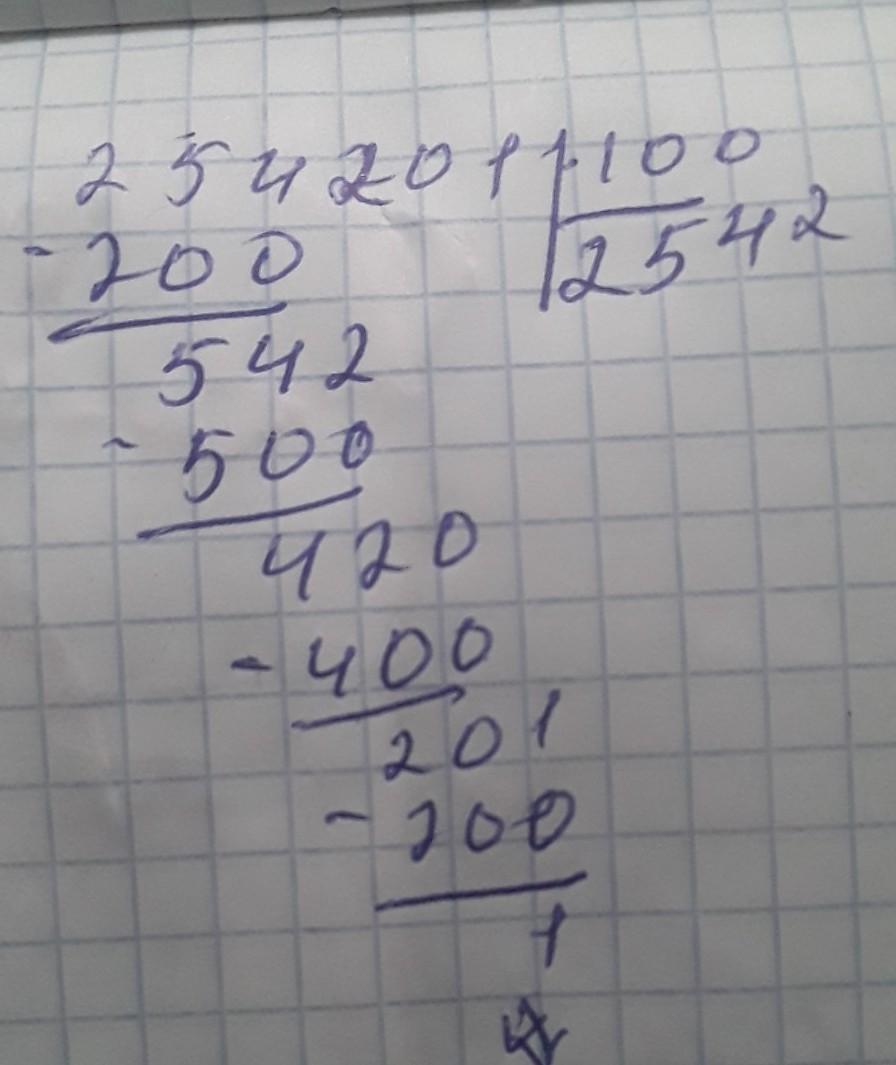 254201 100
- 200 2542
542
- 500
420
- 400
201
- 200
1